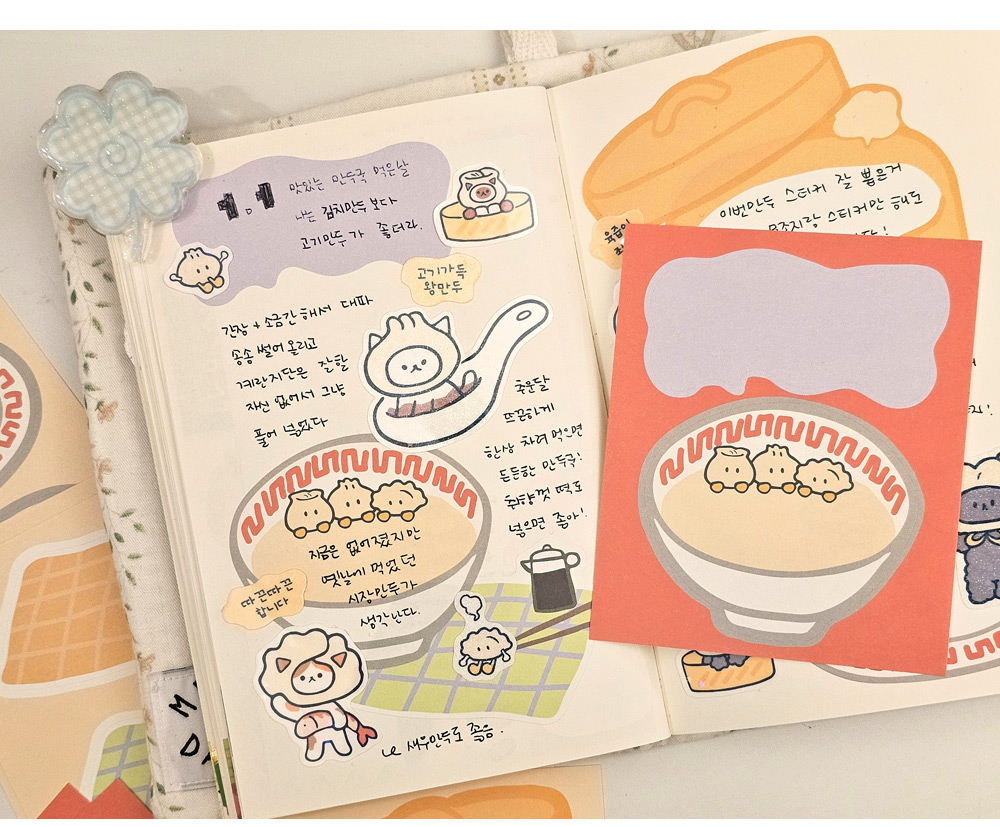 1.1
맛있는 만두국 먹은날
나는 김치만두 보다
고기만두가 좋더라.
고기가득
왕만두
간장 + 소금간 해서 대파
송송 썰어 올리고
계란지단은 잘할
자신 없어서 그냥
풀어 넣었다
추운날
뜨끈하게
한상 차려 먹으면
든든한 만두국!
취향껏 떡도
넣으면 좋아!
지금은 없어졌지만
옛날에 먹었던
시장만두가
생각난다.
따끈따끈
합니다
새우만두도 좋음.
이번만두 스티커 잘 뽑은거
스티커만 해도
육즙이
M
DA